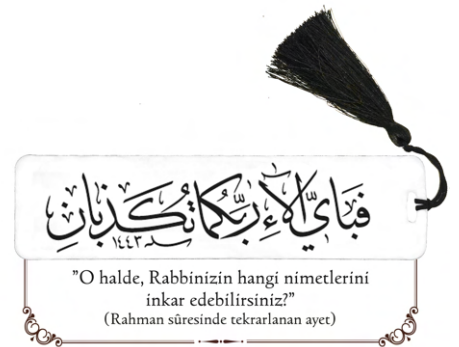 فَبِأَيِّ آلَاءِ رَبِّكُمَا تُكَذِّبَانِ
سنه ١٤٤٣
"O halde, Rabbinizin hangi nimetlerini
inkar edebilirsiniz?"
(Rahman sûresinde tekrarlanan ayet)